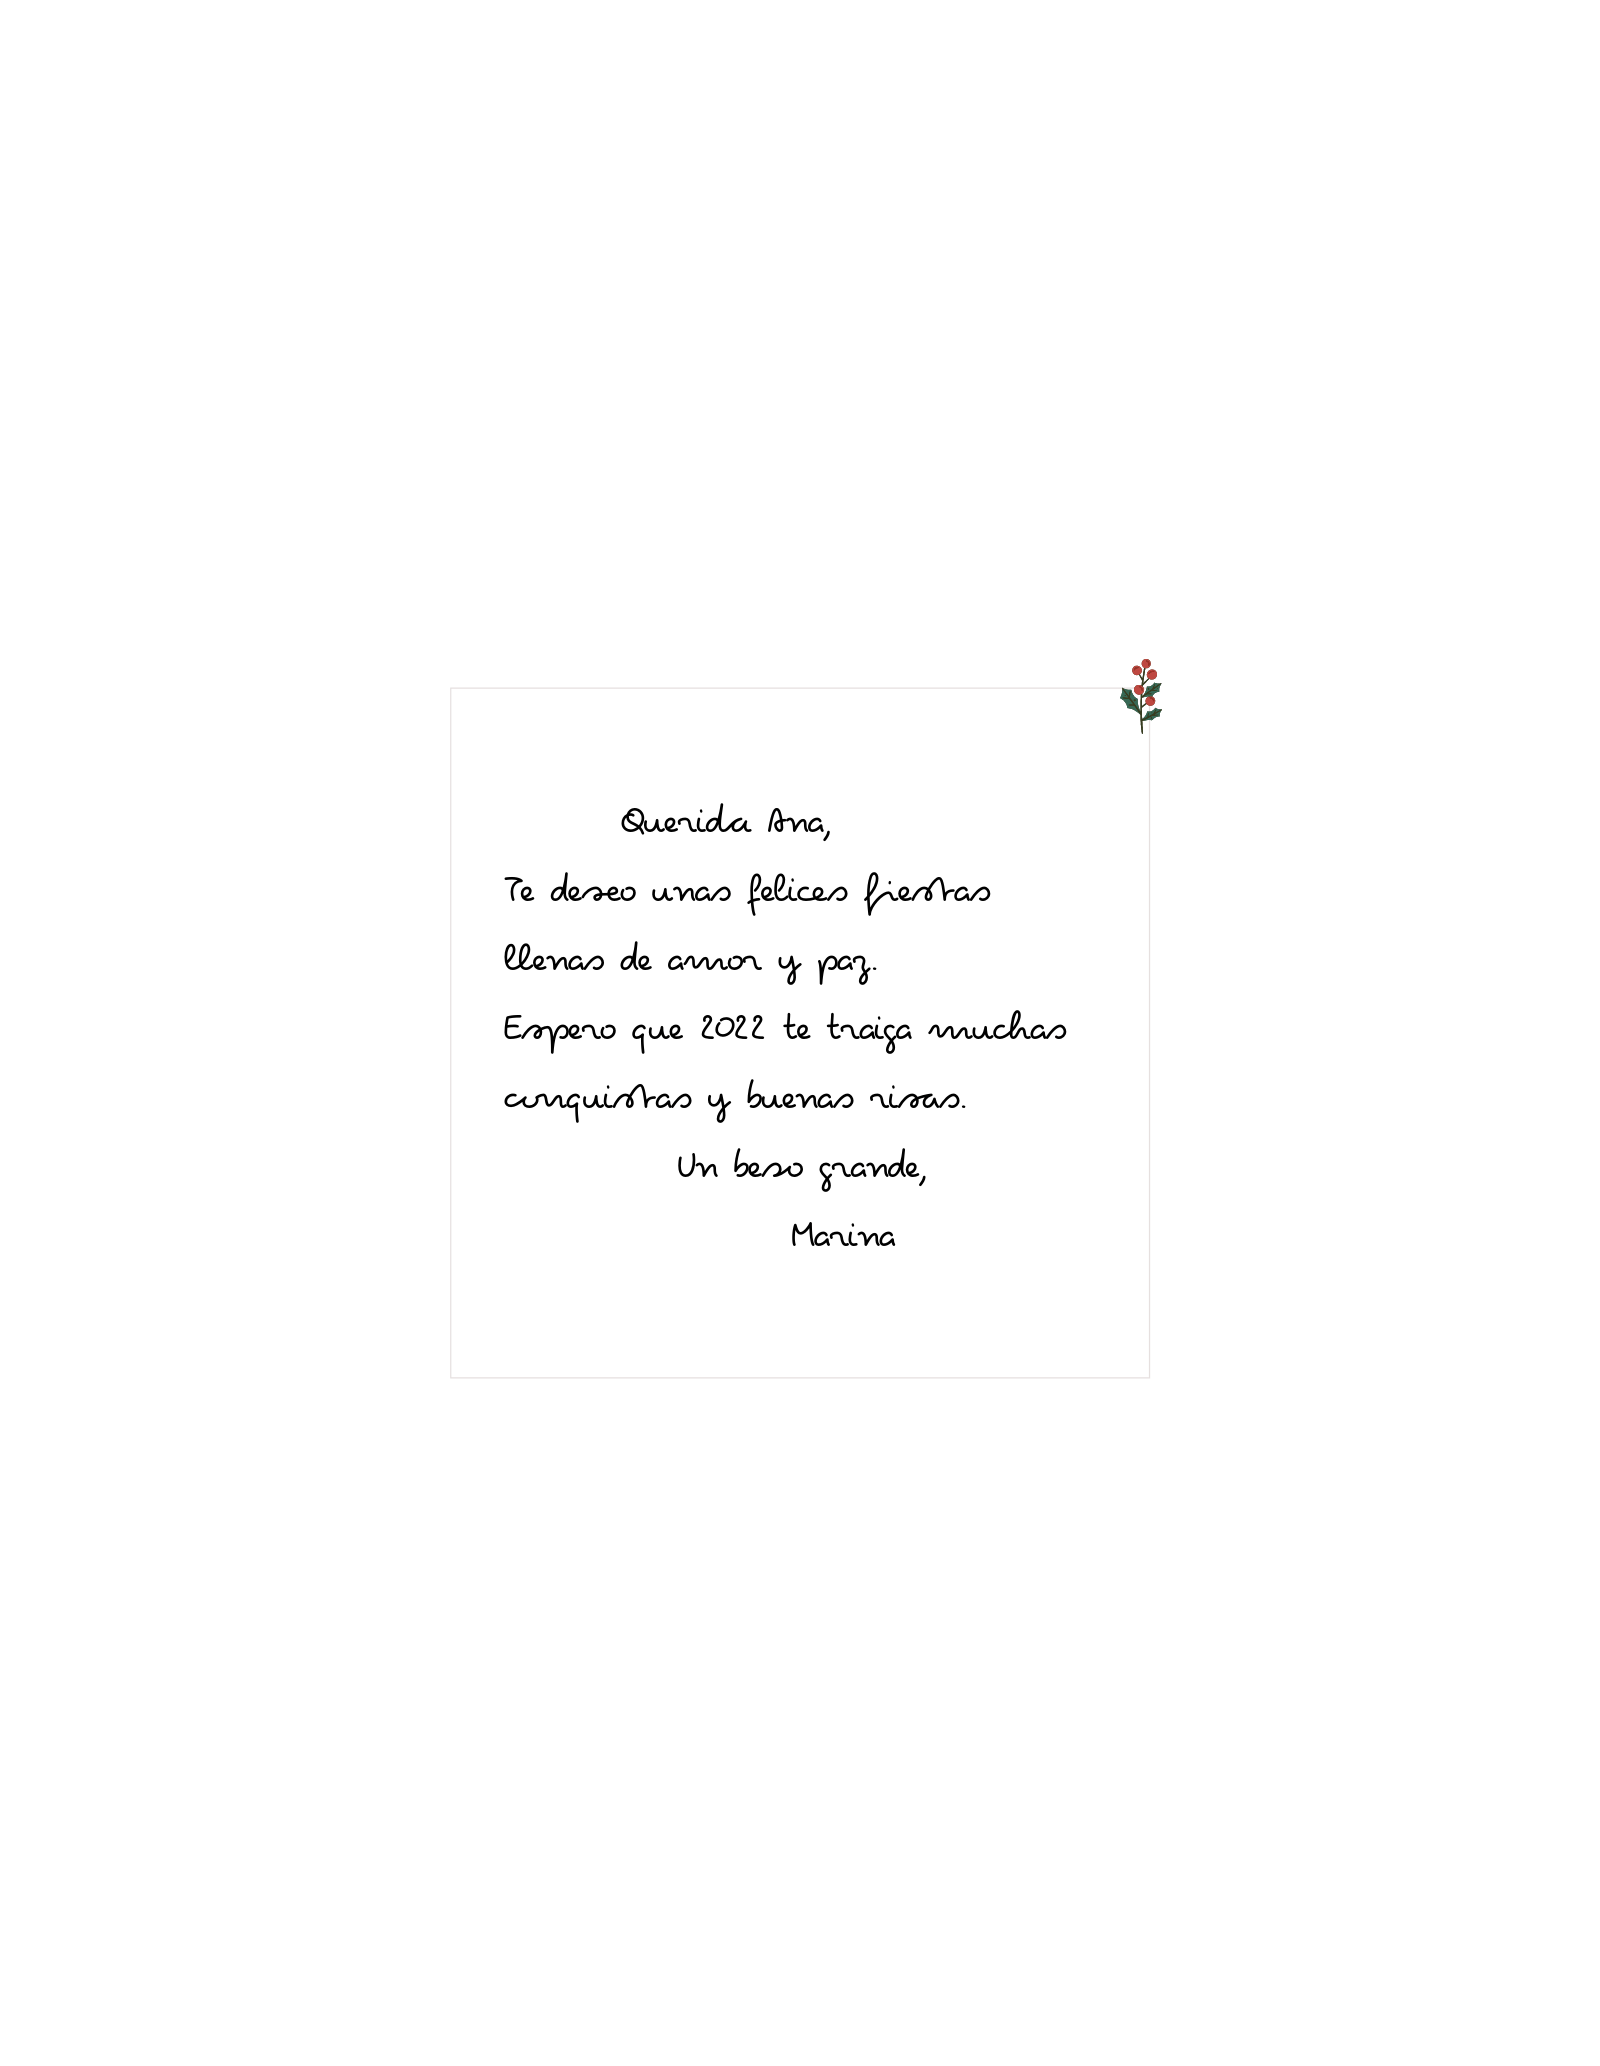 Querida Ana,
Te deseo unas felices fiestas
llenas de amor y paz.
Espero que 2022 te traiga muchas
conquistas y buenas risas.
Un beso grande,
Marina